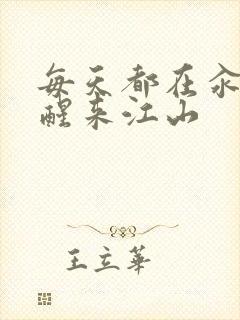 每天都在汆
醒来江山
王立華